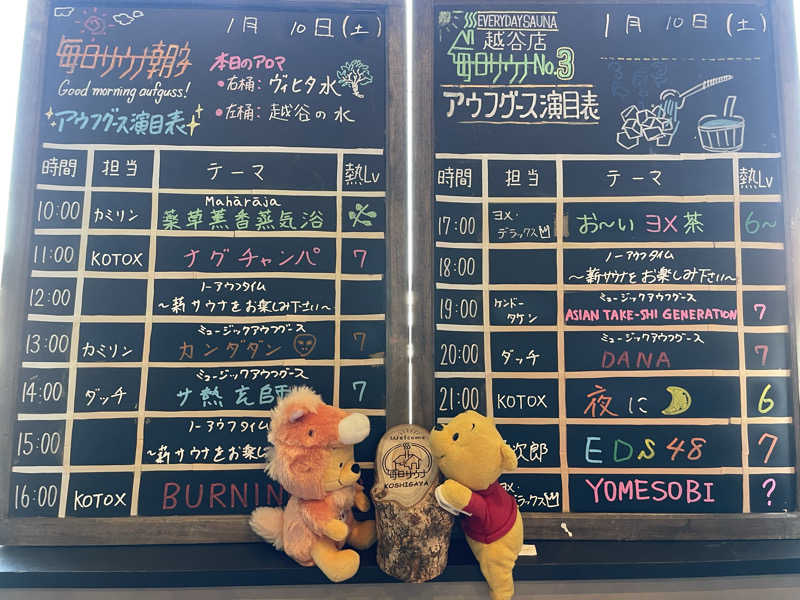 1月 10日(土)
毎日サウナ朝
Good morning aufguss!
アウフグース演目表
本日のアロマ
・右桶: ヴィヒタ水
・左桶: 越谷の水
時間 担当 テーマ 熱Lv
10:00 カミリン Mahāraja
薬草薫香蒸気浴
11:00 KOTOX ナグチャンパ 7
12:00 ノーアウフタイム
〜薪サウナをお楽しみ下さい〜
13:00 カミリン ミュージックアウフグース
カンダダン 7
14:00 ダッチ ミュージックアウフグース
サ熱 師 7
15:00 ノーアウフタイム
〜薪サウナをお楽しみ
16:00 KOTOX BURNIN
EVERYDAYSAUNA
越谷店
毎日サウナNo.3
1月 10日(土)
アウフグース演目表
時間 担当 テーマ 熱Lv
17:00 ヨメ・デラックス お〜いヨメ茶 6〜
18:00 ノーアウフタイム
〜薪サウナをお楽しみ下さい〜
19:00 ケンドータケン ミュージックアウフグース
ASIAN TAKE-SHI GENERATION 7
20:00 ダッチ ミュージックアウフグース
DANA 7
21:00 KOTOX 夜に 6
次郎 EDS48 7
ヨメ・デラックス YOMESOBI ?
Welcome
毎日サウナ
KOSHIGAYA